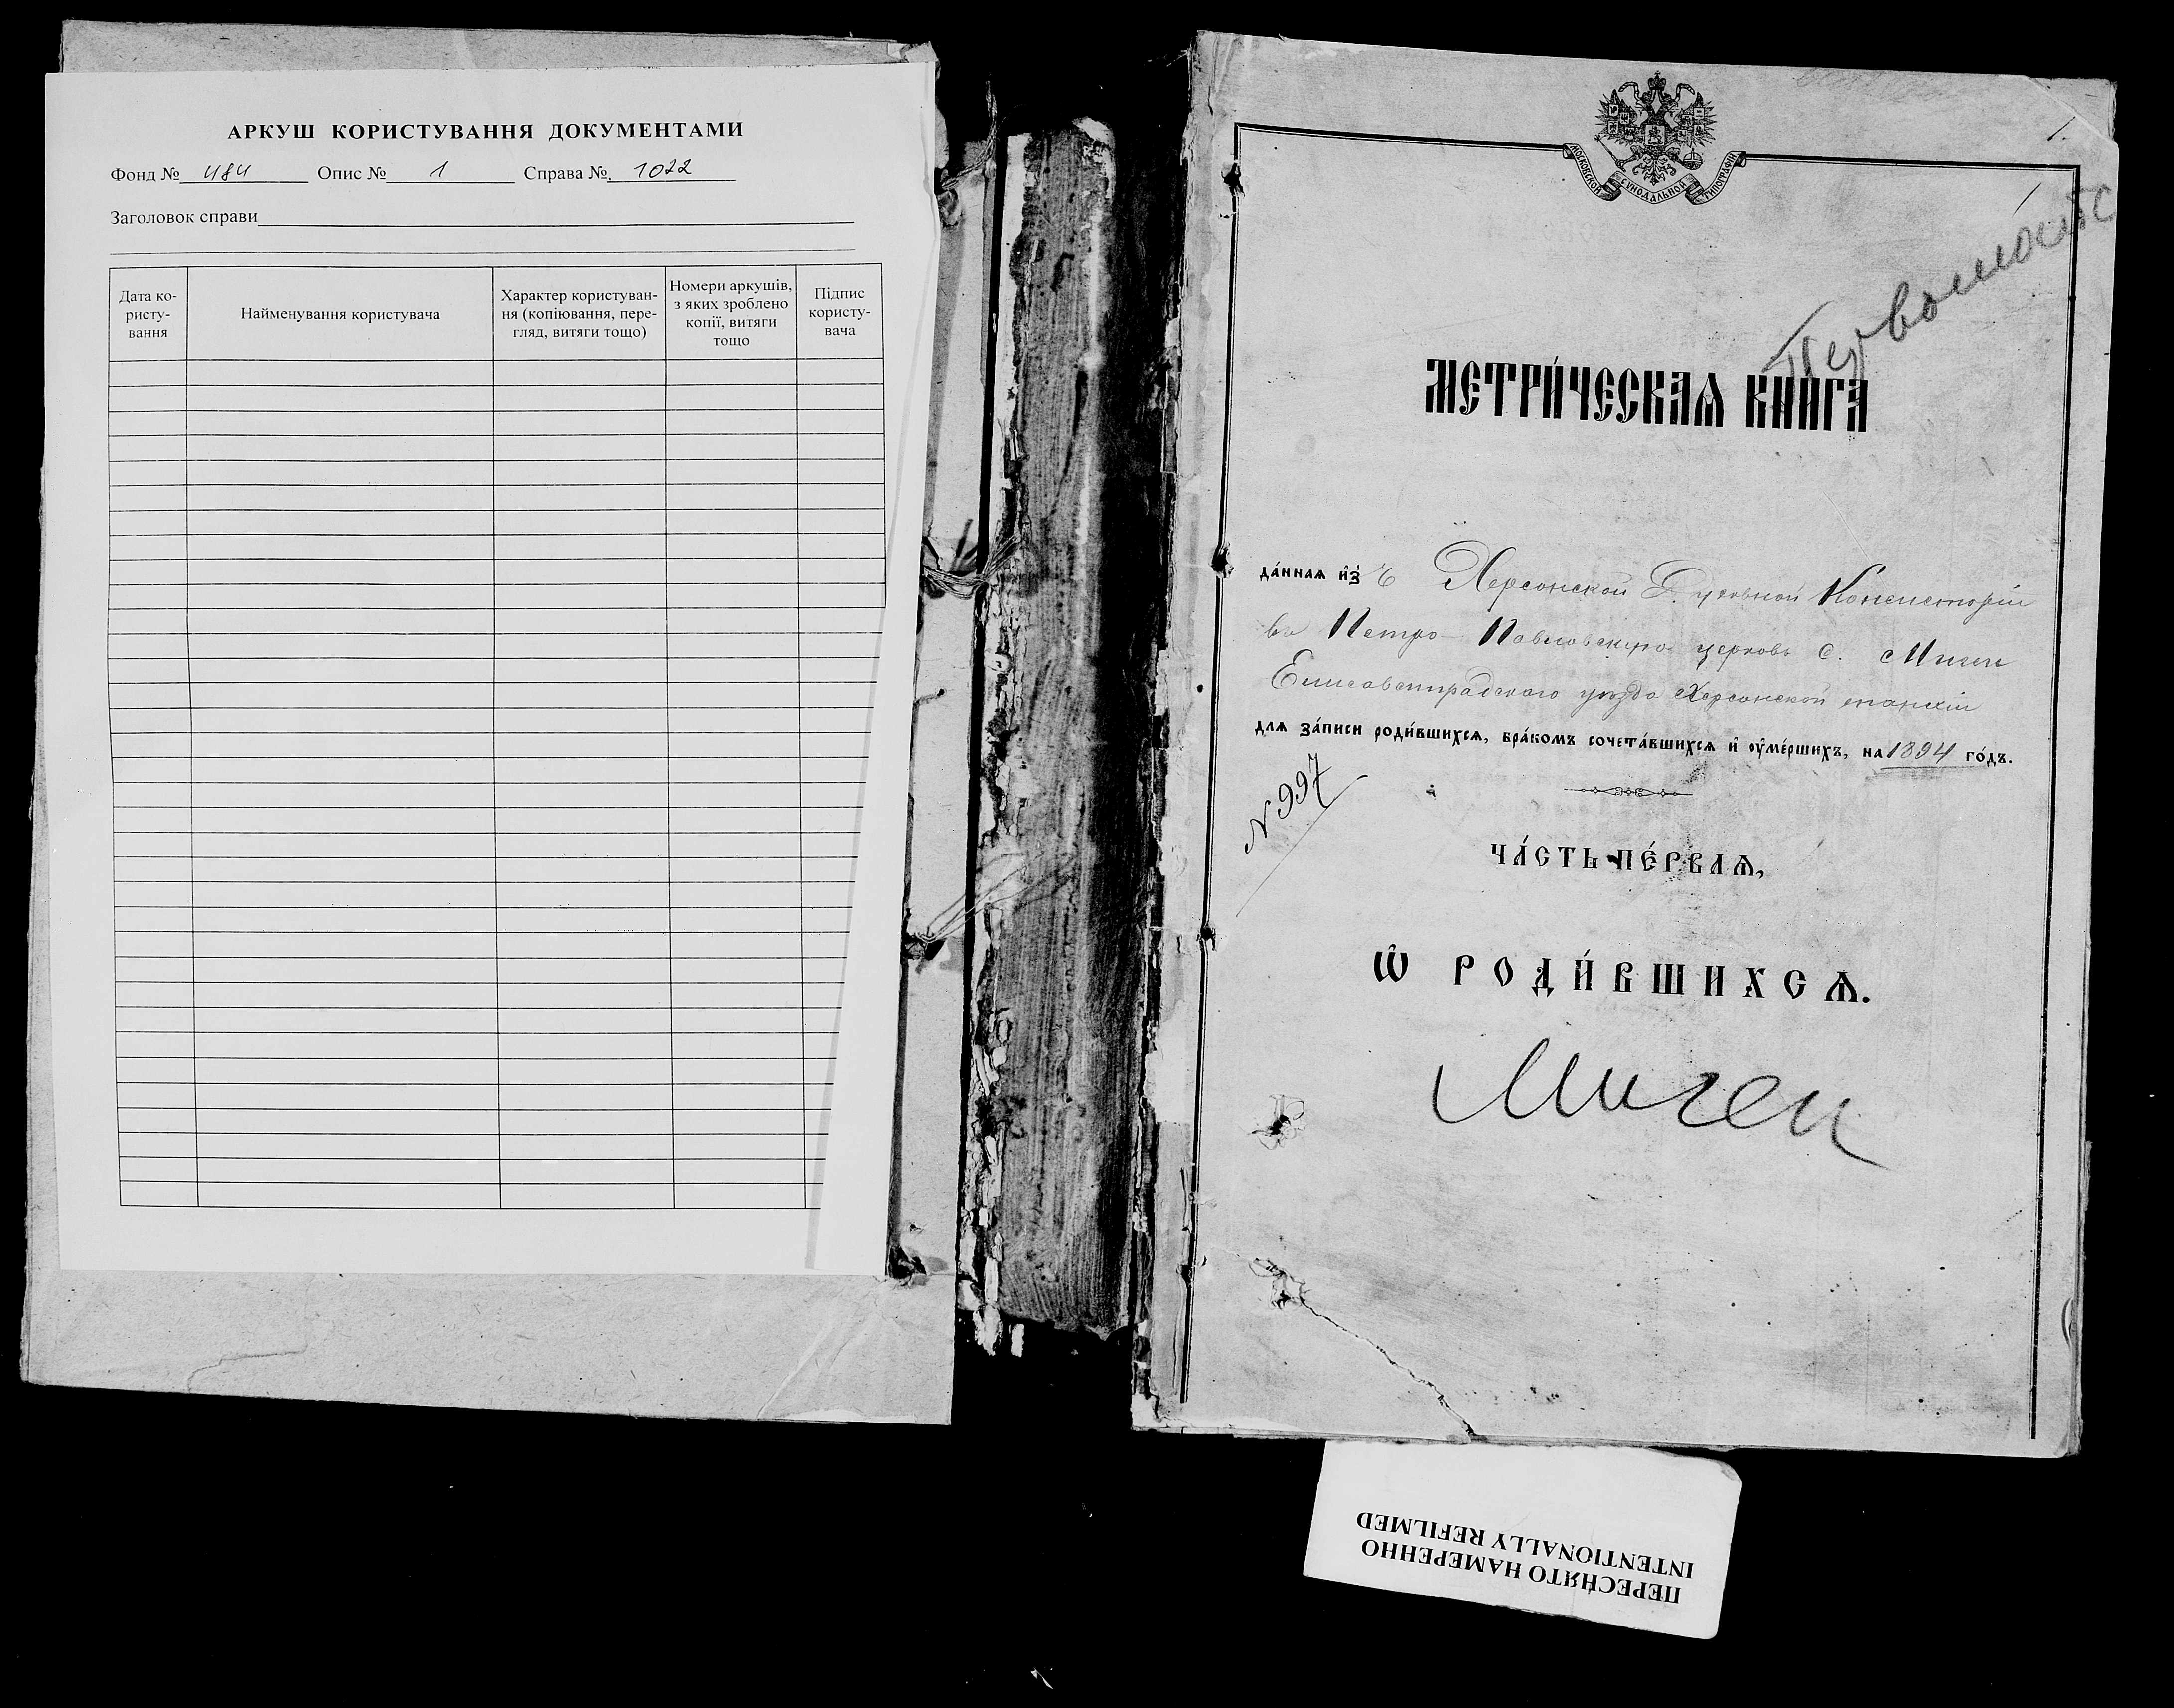 АРКУШ КОРИСТУВАННЯ ДОКУМЕНТАМИ
Фонд № 484 Опис № 1 Справа № 1022
Заголовок справи
Дата ко-
ристу-
вання
Найменування користувача
Характер користуван-
ня (копіювання, пере-
гляд, витяги тощо)
Номери аркушів,
з яких зроблено
копії, витяги
тощо
Підпис
користу-
вача
1.
МОСКОВСКОЙ СѴНОДАЛЬНОЙ ТИПОГРАФІИ
Первомайс
МЕТРИ́ЧЕСКАѦ КНИГА
да́ннаѧ и҆з̾ Херсонской Духовной Консисторіи
въ Петро-Павловскую церковь с. Мигеи
Елисаветградского уѣзда Херсонской епархіи
длѧ за́писи роди́вшихсѧ, бра́комъ сочета́вшихсѧ и҆ ᲂу҆ме́ршихъ, на 1894 го́дъ.
N 997
ЧА́СТЬ ПЕ́РВАѦ,
Ѽ РОДИ́ВШИХСѦ.
Мигеи
ПЕРЕСНЯТО НАМЕРЕННО
INTENTIONALLY REFILMED